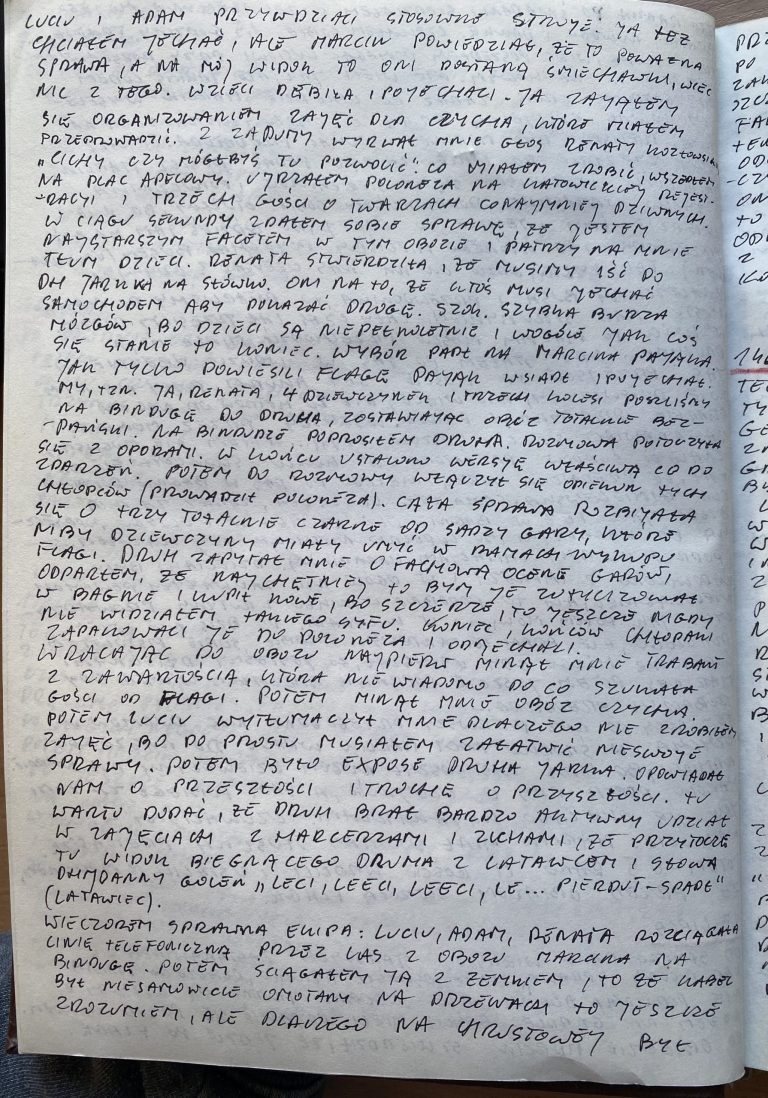 LUCIU I ADAM PRZYWDZIALI STOSOWNE STROJE. JA TEŻ
CHCIAŁEM JECHAĆ, ALE MARCIN POWIEDZIAŁ, ŻE TO POWAŻNA
SPRAWA, A NA MÓJ WIDOK TO ONI DOSTANĄ ŚMIECHAWKI, WIĘC
NIC Z TEGO. WZIELI DEBILA I POJECHALI. JA ZAJĄŁEM
SIĘ ORGANIZOWANIEM ZAJĘĆ DLA CZYCHA, KTÓRE MIAŁEM
PRZEPROWADZIĆ. Z ZADUMY WYRWAŁ MNIE GŁOS RENATY KOZŁOWSKIEJ
„CICHY CZY MÓGŁBYŚ TU POZWOLIĆ". CO MIAŁEM ZROBIĆ, WSZEDŁEM
NA PLAC APELOWY. UJRZAŁEM POLONEZA NA KATOWICKIEJ REJEST-
-RACJI I TRZECH GOŚCI O TWARZACH CONAJMNIEJ DZIWNYCH.
W CIĄGU SEKUNDY ZDAŁEM SOBIE SPRAWĘ, ŻE JESTEM
NAJSTARSZYM FACETEM W TYM OBOZIE I PATRZY NA MNIE
TŁUM DZIECI. RENATA STWIERDZIŁA, ŻE MUSIMY IŚĆ DO
DH JARKA NA SŁÓWKO. ONI NA TO, ŻE KTOŚ MUSI JECHAĆ
SAMOCHODEM ABY POKAZAĆ DROGĘ. SZOK. SZYBKA BURZA
MÓZGÓW, BO DZIECI SĄ NIEPEŁNOLETNIE I WOGÓLE JAK COŚ
SIĘ STANIE TO KONIEC. WYBÓR PADŁ NA MARCINA PAJĄKA.
JAK TYLKO POWIESILI FLAGĘ PAJĄK WSIADŁ I POJECHAŁ.
MY, TZN. JA, RENATA, 4 DZIEWCZYNKI I TRZECH KOLESI POSZLIŚMY
NA BINDUGĘ DO DRUHA, ZOSTAWIAJĄC OBÓZ TOTALNIE BEZ-
-PAŃSKI. NA BINDUDZE POPROSIŁEM DRUHA. ROZMOWA POTOCZYŁA
SIĘ Z OPORAMI. W KOŃCU USTALONO WERSJĘ WŁAŚCIWĄ CO DO
ZDARZEŃ. POTEM DO ROZMOWY WŁĄCZYŁ SIĘ OPIEKUN TYCH
CHŁOPCÓW (PROWADZIŁ POLONEZA). CAŁA SPRAWA ROZBIJAŁA
SIĘ O TRZY TOTALNIE CZARNE OD SADZY GARY, KTÓRE
NIBY DZIEWCZYNY MIAŁY UMYĆ W RAMACH WYKUPU
FLAGI. DRUH ZAPYTAŁ MNIE O FACHOWĄ OCENĘ GARÓW,
ODPARŁEM, ŻE NAJCHĘTNIEJ TO BYM JE ZUTYLIZOWAŁ
W BAGNIE I KUPIŁ NOWE, BO SZCZERZE, TO JESZCZE NIGDY
NIE WIDZIAŁEM TAKIEGO SYFU. KONIEC, KOŃCÓW CHŁOPAKI
ZAPAKOWALI JE DO POLONEZA I ODJECHALI.
WRACAJĄC DO OBOZU NAJPIERW MINĄŁ MNIE TRABANT
Z ZAWARTOŚCIĄ, KTÓRA NIE WIADOMO DO CO SZUKAŁA
GOŚCI OD FLAGI. POTEM MINĄŁ MNIE OBÓZ CZYCHA.
POTEM LUCIU WYTŁUMACZYŁ MNIE DLACZEGO NIE ZROBIŁEM
ZAJĘĆ, BO DO PROSTU MUSIAŁEM ZAŁATWIĆ NIESWOJE
SPRAWY. POTEM BYŁO EXPOSE DRUHA JARKA. OPOWIADAŁ
NAM O PRZESZŁOŚCI I TROCHĘ O PRZYSZŁOŚCI. TU
WARTO DODAĆ, ŻE DRUH BRAŁ BARDZO AKTYWNY UDZIAŁ
W ZAJĘCIACH Z HARCERZAMI I ZUCHAMI, ŻE PRZYTOCZĘ
TU WIDOK BIEGNĄCEGO DRUHA Z LATAWCEM I SŁOWA
DH JOANNY GOLEŃ „LECI, LEECI, LEECI, LE... PIERDUT-SPADŁ"
(LATAWIEC).
WIECZOREM SPRAWNA EKIPA: LUCIU, ADAM, RENATA ROZCIĄGAŁA
LINIĘ TELEFONICZNĄ PRZEZ LAS Z OBOZU MARCINA NA
BINDUGĘ. POTEM ŚCIĄGAŁEM JĄ Z ZEMKIEM, TO ŻE KABEL
BYŁ NIESAMOWICIE OMOTANY NA DRZEWACH TO JESZCZE
ZROZUMIEM, ALE DLACZEGO NA CHRUSTOWEJ BYŁ